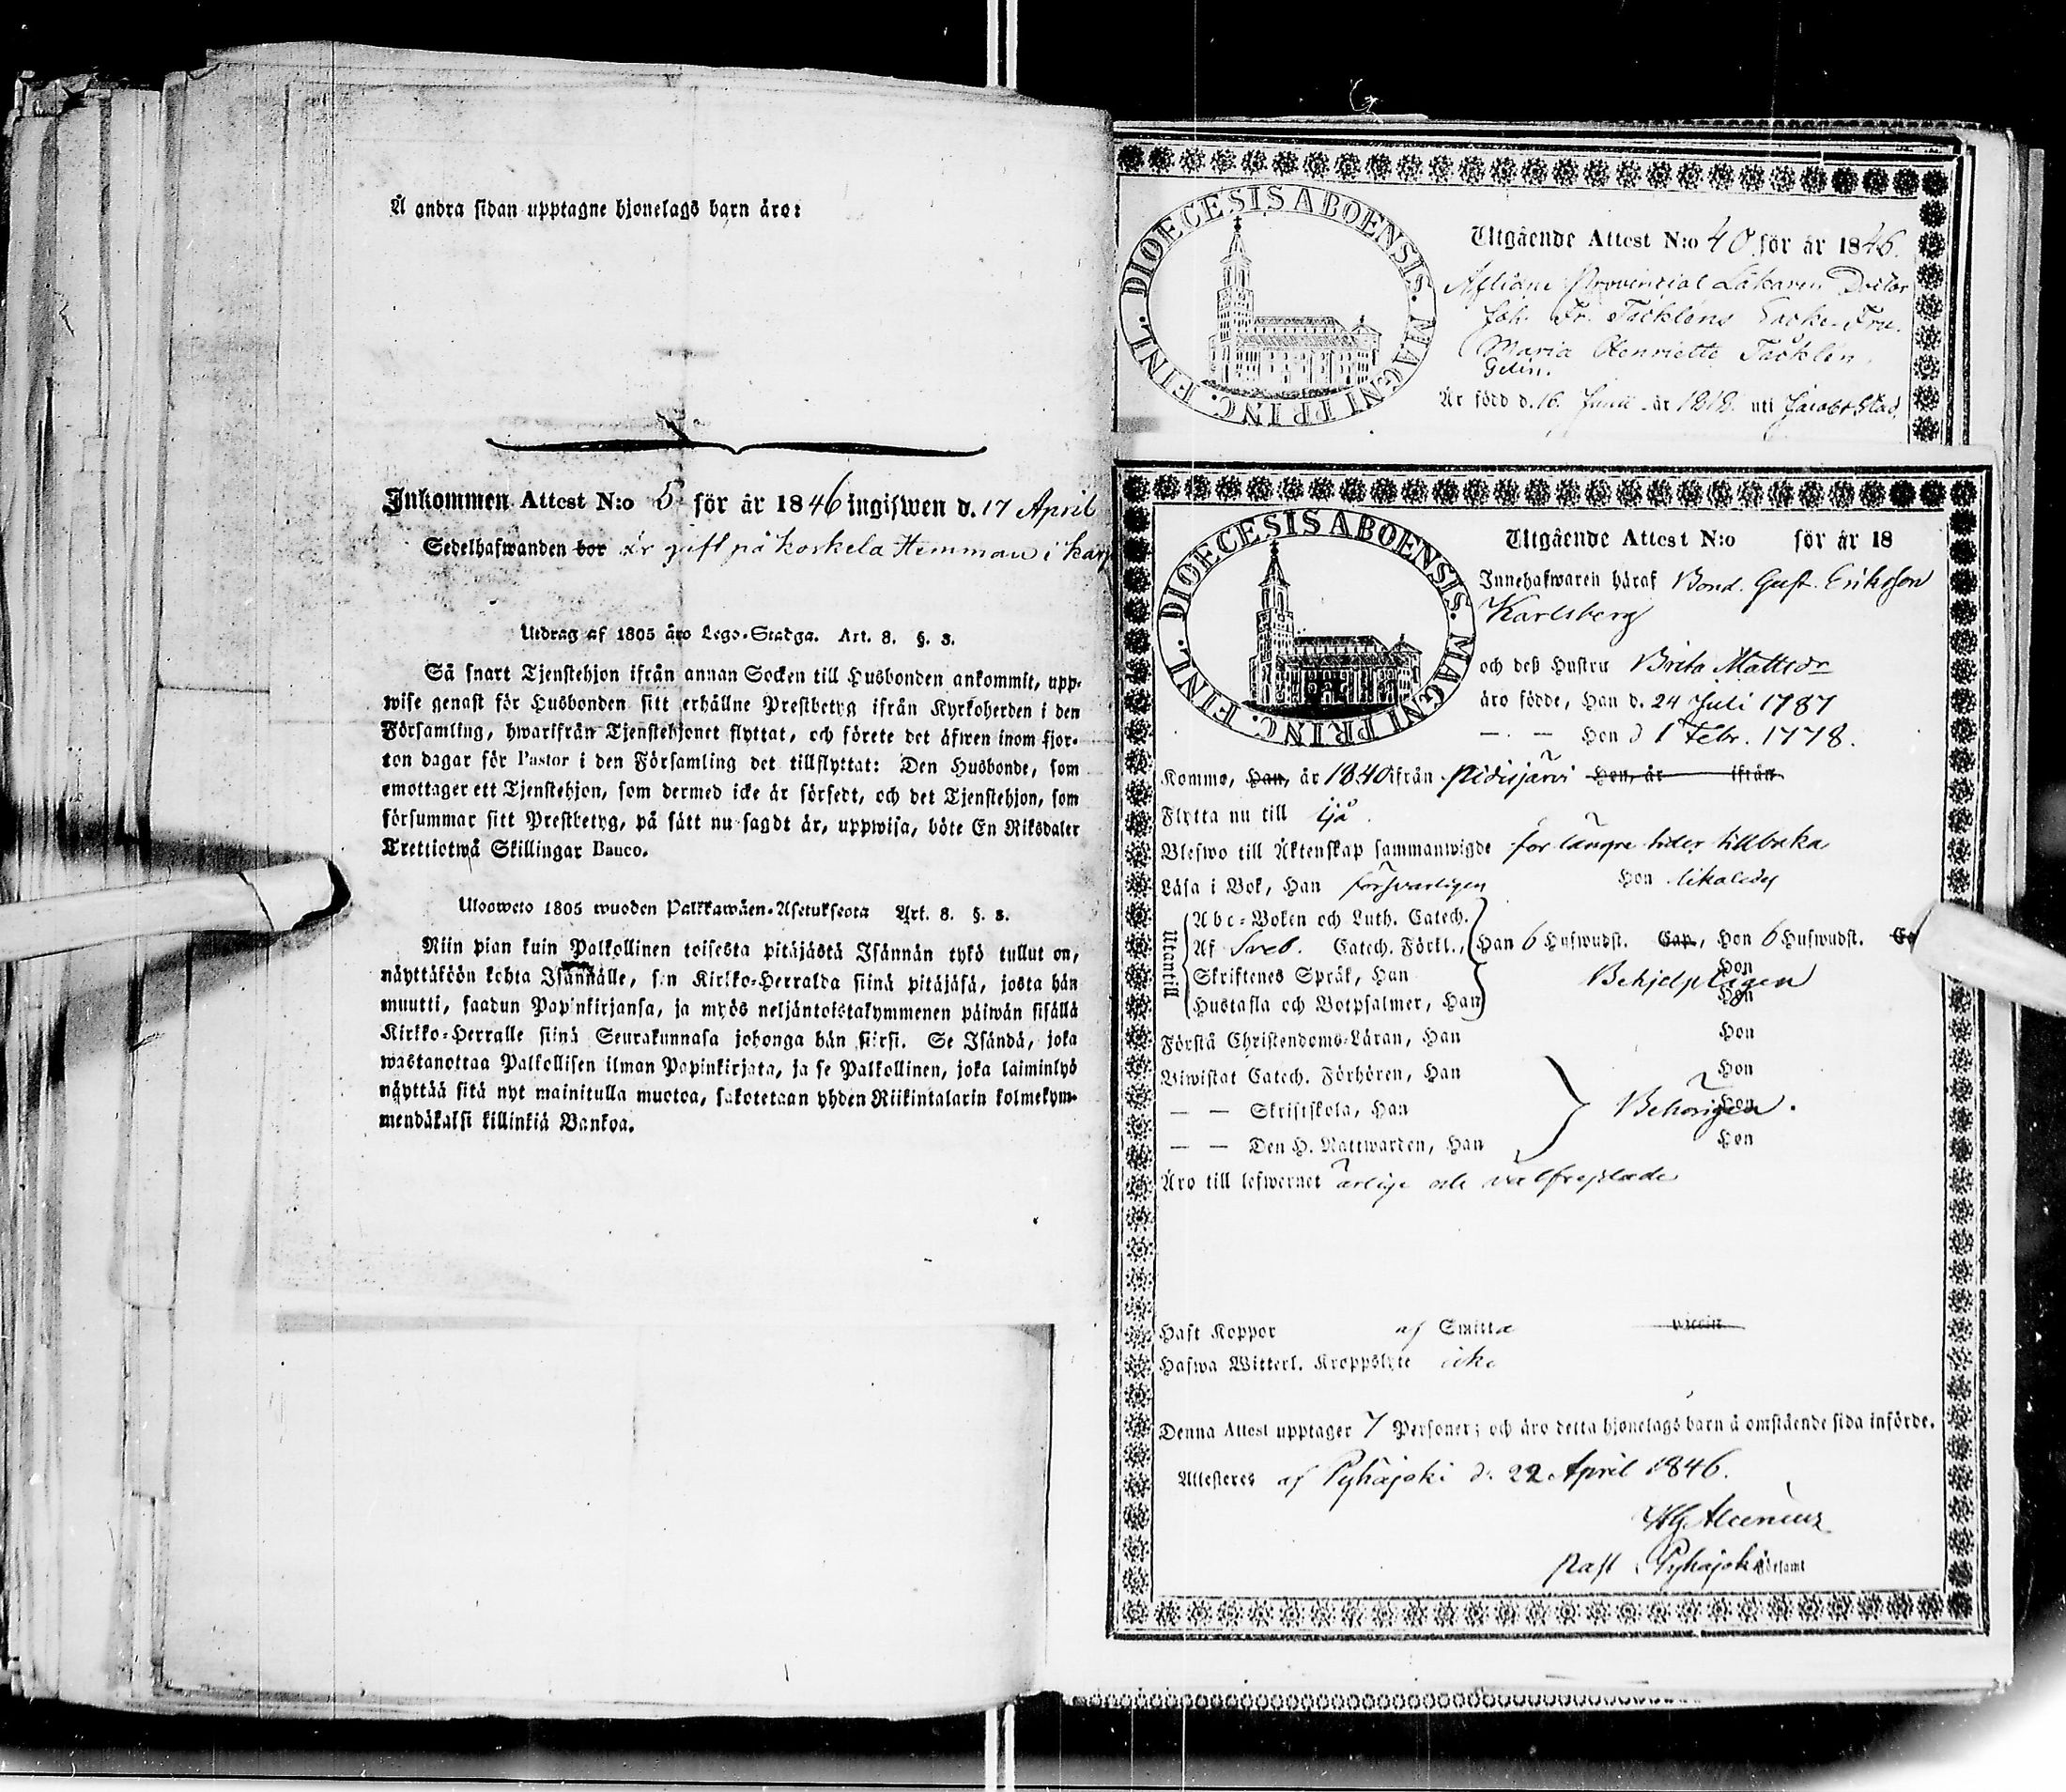 Å andra sidan upptagne hjonelags barn äro:
Inkommen Attest N:o 5 för år 1846 ingifwen d. 17 April
Sedelhafwanden bor är gift på Koskela Hemman i
Utdrag af 1805 års Lego-Stadga. Art. 8. §. 3.
Så snart Tjenstehjon ifrån annan Socken till Husbonden ankommit, upp-
wise genast för Husbonden sitt erhållne Prestbetyg ifrån Kyrkoherden i den
Församling, hwarifrån Tjenstehjonet flyttat, och förete det äfwen inom fjor-
ton dagar för Pastor i den Församling det tillflyttat: Den Husbonde, som
emottager ett Tjenstehjon, som dermed icke är försedt, och det Tjenstehjon, som
försummar sitt Prestbetyg, på sätt nu sagdt är, uppwisa, böte En Riksdaler
Trettiotwå Skillingar Banco.
Ulosweto 1805 wuoden Palkkawäen-Asetuksesta Art. 8. §. 3.
Niin pian kuin Palkollinen toisesta pitäjästä Isännän tykö tullut on,
näyttäköön kohta Isännälle, sen Kirkko-Herralda siinä pitäjäsä, josta hän
muutti, saadun Papinkirjansa, ja myös neljäntoistakymmenen päiwän sisällä
Kirkko-Herralle siinä Seurakunnasa johonga hän siirsi. Se Isändä, joka
wastanottaa Palkollisen ilman Papinkirjata, ja se Palkollinen, joka laiminlyö
näyttää sitä nyt mainitulla muotoa, sakotetaan yhden Riikintalarin kolmekym-
mendäkaksi killinkiä Bankoa.
DIOECESIS ABOENSIS. MAGNI PRINC. FINL.
Utgående Attest N:o 40 för år 1846.
Aflidne Provincial Läkaren Doctor
Joh. Fr. Täcklens Enke-Fru
Maria Henriette Täcklen,
Är född d. 16. Junii år 1818. uti Jacobstad,
DIOECESIS ABOENSIS. MAGNI PRINC. FINL.
Utgående Attest N:o för år 18
Innehafwaren häraf Bond. Gust. Eriksson
Karlsberg
och deß Hustru Brita Mattsdr
äro födde, Han d. 24 Juli 1787
— — Hon d 1 Febr. 1778.
Komme, Han, år 1840 ifrån Pidisjärvi Hon, år ifrån
Flytta nu till Ijå.
Blefwo till Äktenskap sammanwigde för längre tider tillbaka
Läsa i Bok, Han försvarligen Hon likaledes
Utantill
Abc-Boken och Luth. Catech.
Af Sveb. Catech. Förkl., Han 6 Hufwudst. Cap., Hon 6 Hufwudst.
Skriftenes Språk, Han Hon Behjelpligen
Hustafla och Botpsalmer, Han Hon
Förstå Christendoms-Läran, Han Hon
Biwistat Catech. Förhören, Han Hon
— — Skriftskola, Han Hon Behörigen.
— — Den H. Nattwarden, Han Hon
Äro till lefwernet ärlige och välfrejdade
Haft Koppor af Smitta vaccin.
Hafwa Witterl. Kroppslyte icke
Denna Attest upptager 7 Personer; och äro detta hjonelags barn å omstående sida införde.
Attesteres af Pyhäjoki d. 22 April 1846.
Past i Pyhäjoki Församl